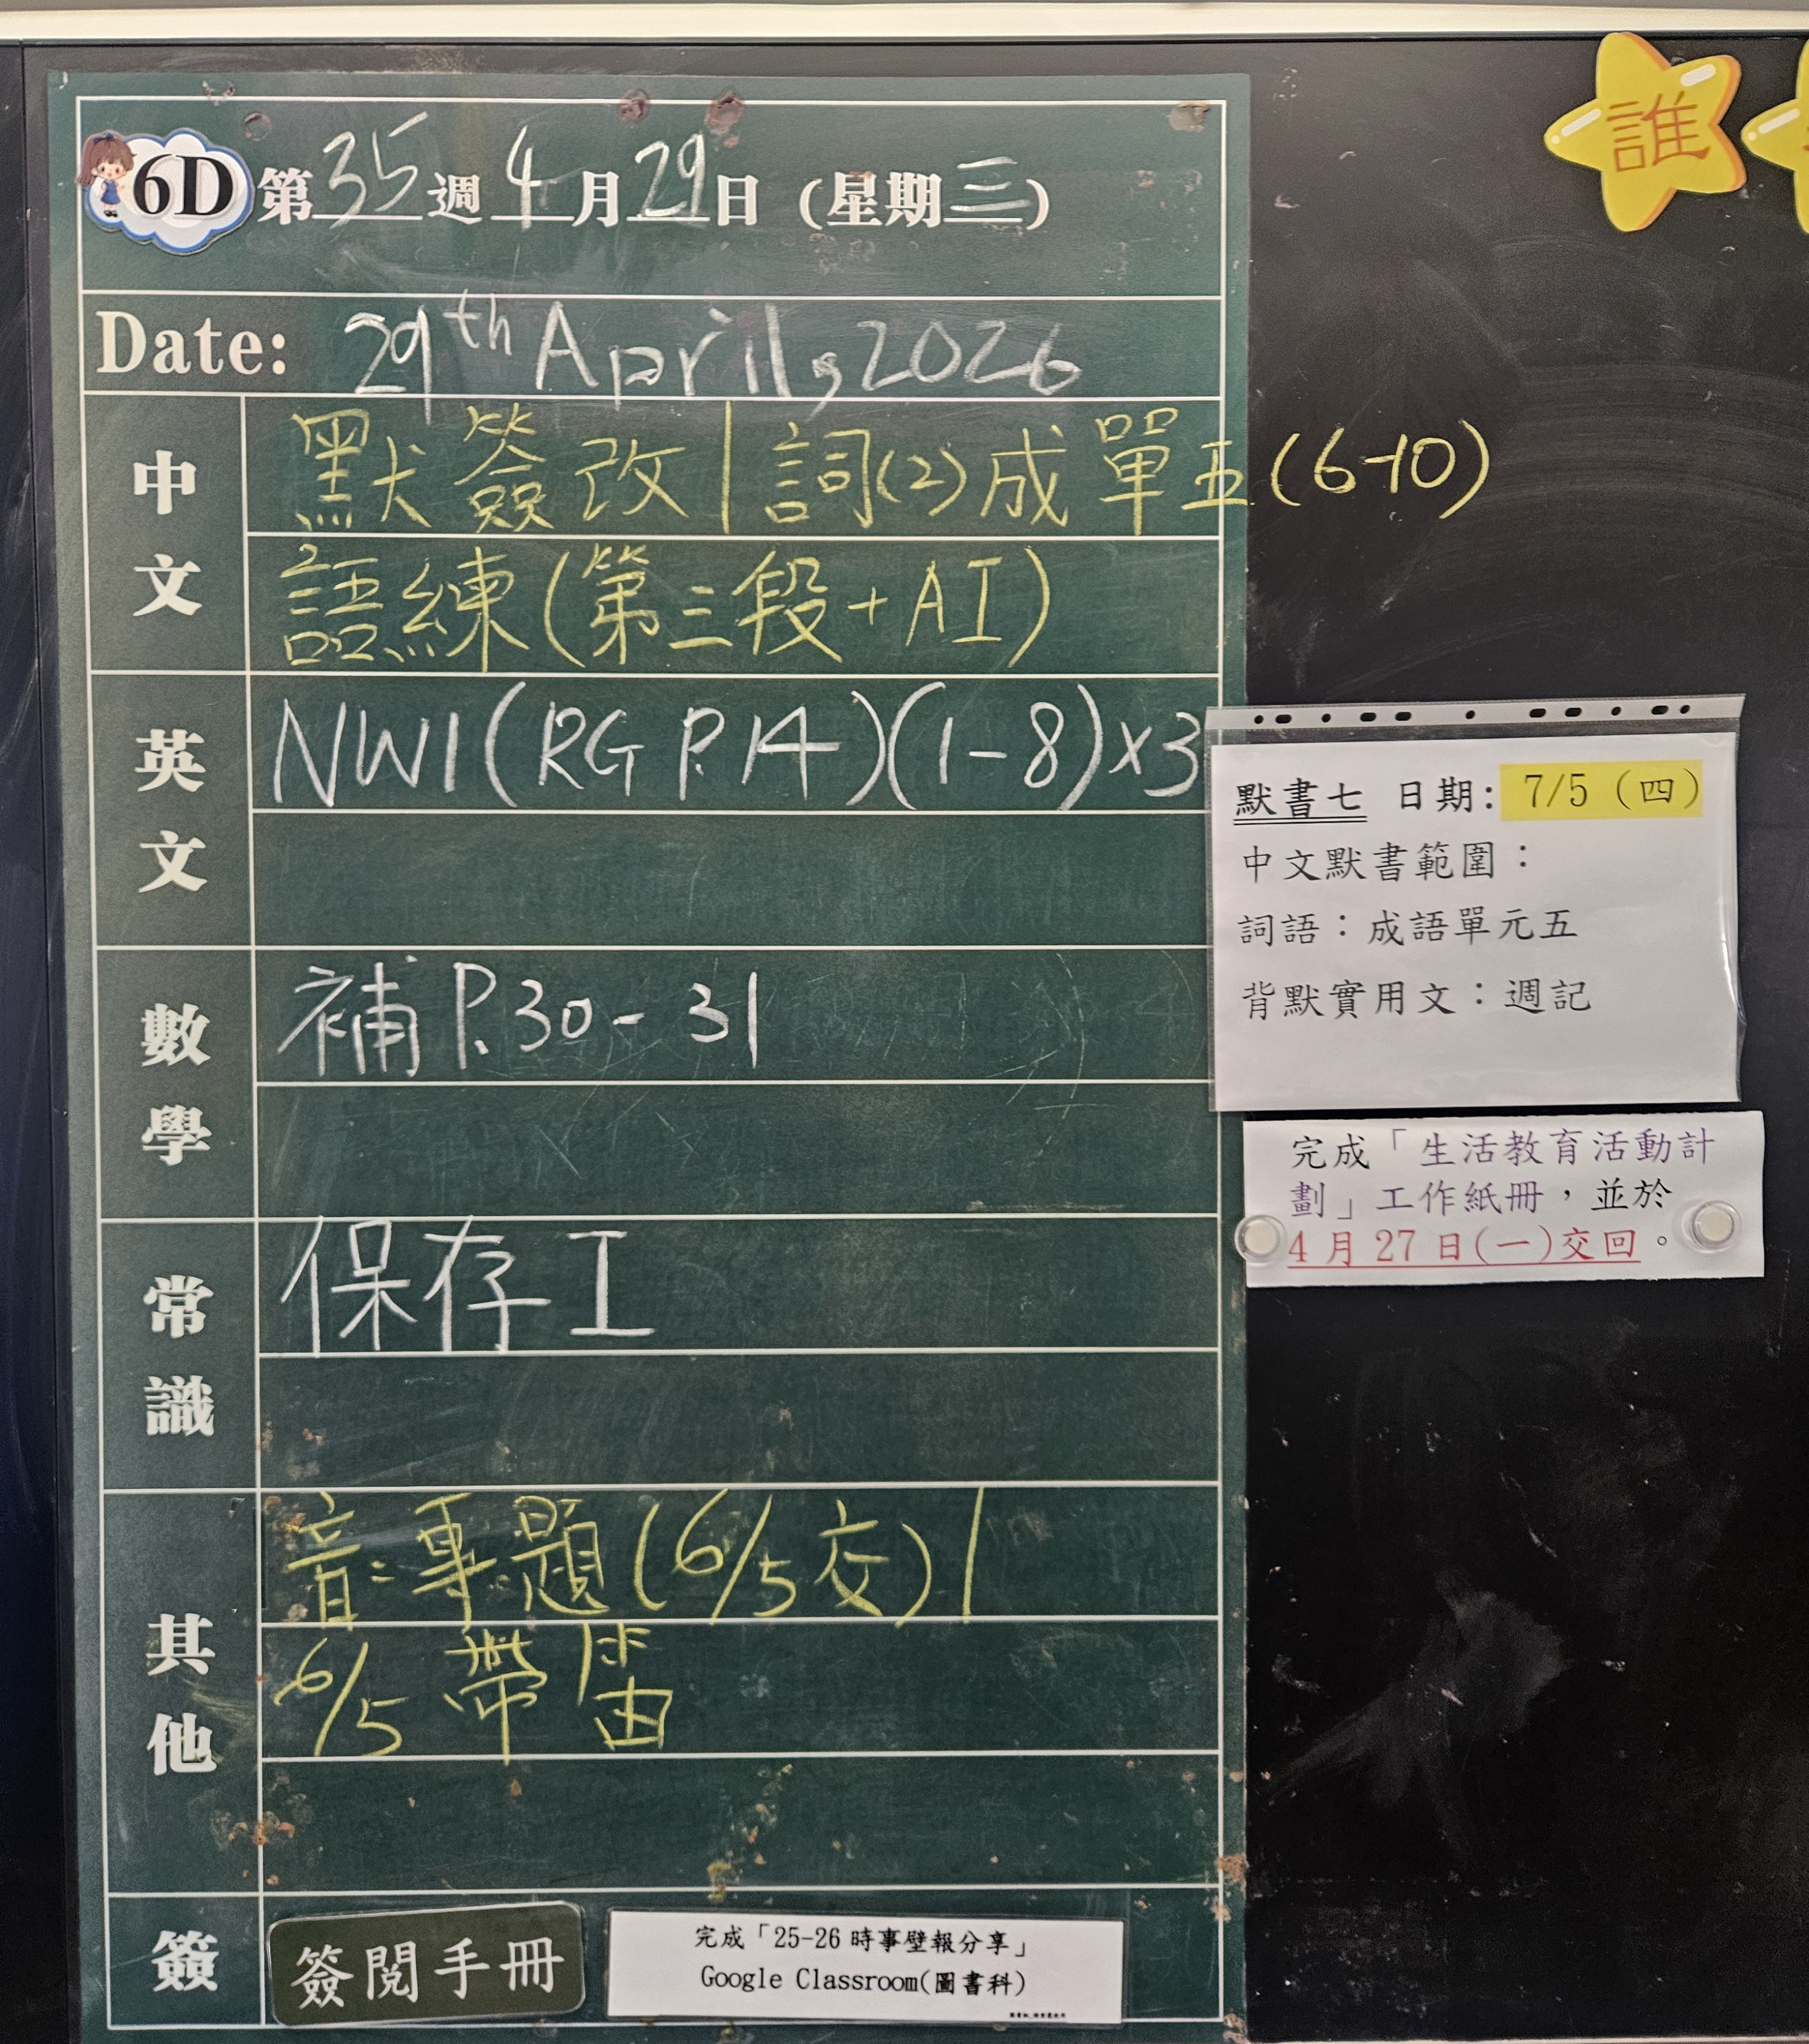 6D 第35週4月29日(星期三)
Date: 29th April, 2026
中文
默簽改|詞(2)成單五(6-10)
語練(第三段+AI)
英文
NW1(RG P.14)(1-8)x3
數學
補P.30-31
常識
保存工
其他
音:專題(6/5交)|
6/5 帶笛
簽
簽閱手冊
完成「25-26 時事壁報分享」
Google Classroom(圖書科)
誰
默書七 日期: 7/5 (四)
中文默書範圍:
詞語:成語單元五
背默實用文:週記
完成「生活教育活動計
劃」工作紙冊,並於
4 月 27 日(一)交回。